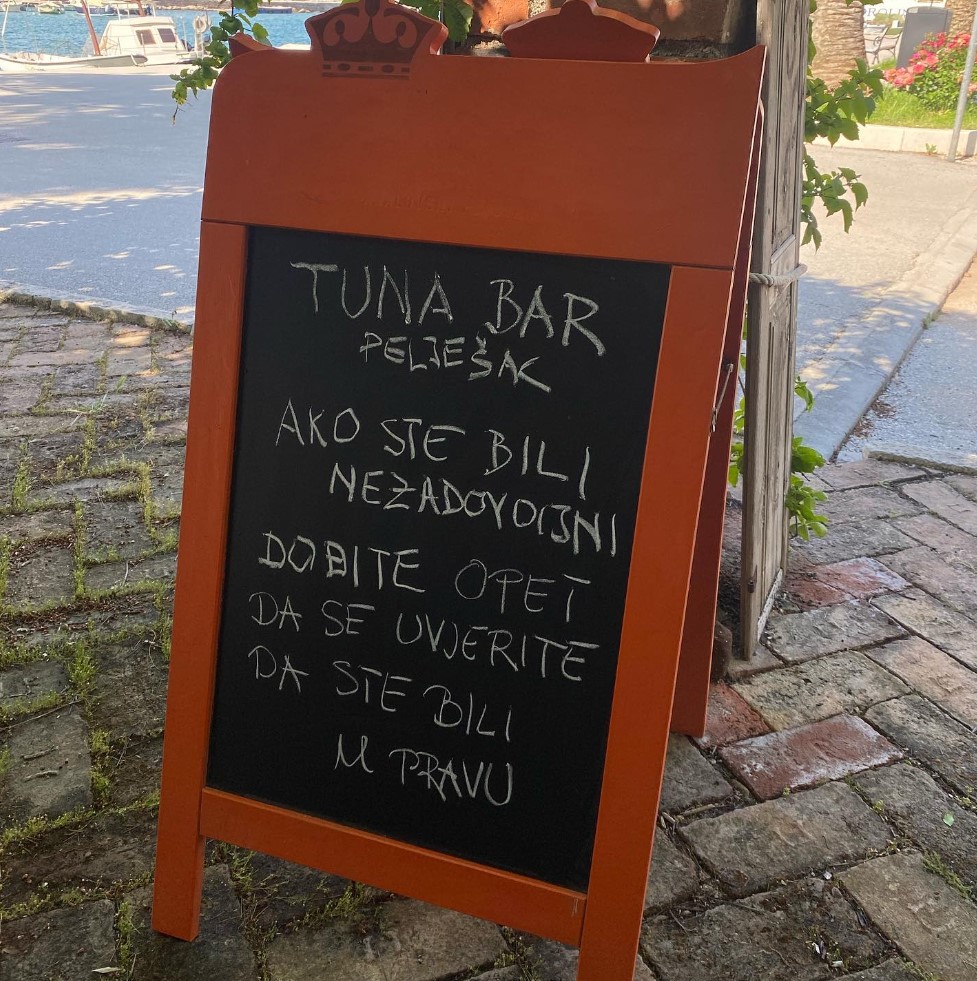 TUNA BAR
PELJEŠAC
AKO STE BILI
NEZADOVOLJNI
DOĐITE OPET
DA SE UVJERITE
DA STE BILI
U PRAVU